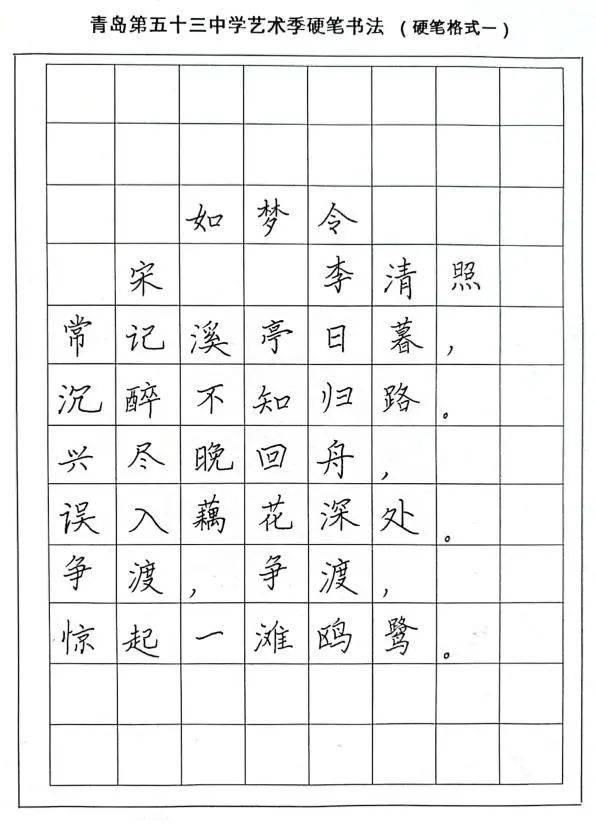 青岛第五十三中学艺术季硬笔书法 （硬笔格式一）
如梦令
宋 李清照
常记溪亭日暮，
沉醉不知归路。
兴尽晚回舟，
误入藕花深处。
争渡，争渡，
惊起一滩鸥鹭。